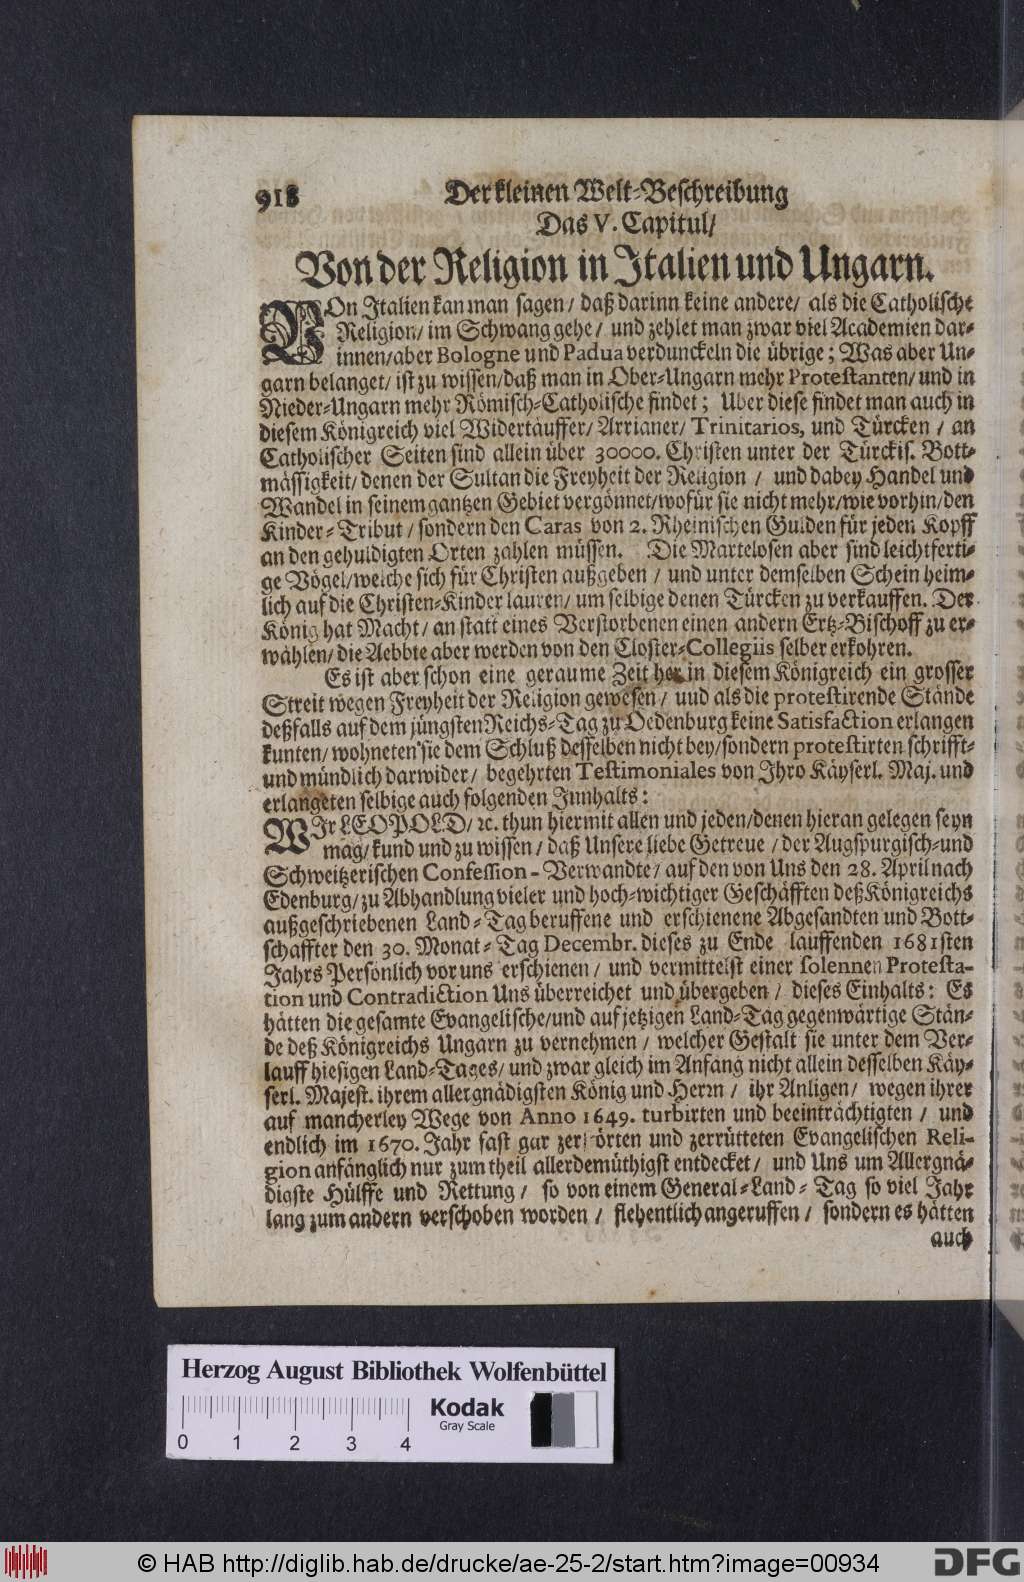 918 Der kleinen Welt-Beschreibung
Das V. Capitul/
Von der Religion in Italien und Ungarn.
VOn Italien kan man sagen/ daß darinn keine andere/ als die Catholische
Religion/ im Schwang gehe/ und zehlet man zwar viel Academien dar-
innen/ aber Bologne und Padua verdunckeln die übrige; Was aber Un-
garn belanget/ ist zu wissen/ daß man in Ober-Ungarn mehr Protestanten/ und in
Nieder-Ungarn mehr Römisch-Catholische findet; Uber diese findet man auch in
diesem Königreich viel Widertäuffer/ Arrianer/ Trinitarios, und Türcken / an
Catholischer Seiten sind allein über 30000. Christen unter der Türckis. Bott-
mässigkeit/ denen der Sultan die Freyheit der Religion / und dabey Handel und
Wandel in seinem gantzen Gebiet vergönnet/ wofür sie nicht mehr/ wie vorhin/ den
Kinder-Tribut / sondern den Caras von 2. Rheinischen Gulden für jeden Kopff
an den gehuldigten Orten zahlen müssen. Die Martelosen aber sind leichtferti-
ge Vögel/ welche sich für Christen außgeben / und unter demselben Schein heim-
lich auf die Christen-Kinder lauren/ um selbige denen Türcken zu verkauffen. Der
König hat Macht/ an statt eines Verstorbenen einen andern Ertz-Bischoff zu er-
wählen/ die Aebbte aber werden von den Closter-Collegiis selber erkohren.
Es ist aber schon eine geraume Zeit her in diesem Königreich ein grosser
Streit wegen Freyheit der Religion gewesen / uud als die protestirende Stände
deßfalls auf dem jüngsten Reichs-Tag zu Oedenburg keine Satisfaction erlangen
kunten/ wohneten sie dem Schluß desselben nicht bey/ sondern protestirten schrifft-
und mündlich darwider/ begehrten Testimoniales von Ihro Käyserl. Maj. und
erlangeten selbige auch folgenden Innhalts:
WIr LEOPOLD/ ꝛc. thun hiermit allen und jeden/ denen hieran gelegen seyn
mag/ kund und zu wissen/ daß Unsere liebe Getreue / der Augspurgisch- und
Schweitzerischen Confession-Verwandte/ auf den von Uns den 28. April nach
Edenburg/ zu Abhandlung vieler und hoch-wichtiger Geschäfften deß Königreichs
außgeschriebenen Land-Tag beruffene und erschienene Abgesandten und Bott-
schaffter den 30. Monat-Tag Decembr. dieses zu Ende lauffenden 1681sten
Jahrs Persönlich vor uns erschienen/ und vermittelst einer solennen Protesta-
tion und Contradiction Uns überreichet und übergeben / dieses Einhalts: Es
hätten die gesamte Evangelische/ und auf jetzigen Land-Tag gegenwärtige Stän-
de deß Königreichs Ungarn zu vernehmen / welcher Gestalt sie unter dem Ver-
lauff hiesigen Land-Tages/ und zwar gleich im Anfang nicht allein desselben Käy-
serl. Majest. ihrem allergnädigsten König und Herrn / ihr Anligen/ wegen ihrer
auf mancherley Wege von Anno 1649. turbirten und beeinträchtigten / und
endlich im 1670. Jahr fast gar zerstörten und zerrütteten Evangelischen Reli-
gion anfänglich nur zum theil allerdemüthigst entdecket/ und Uns um Allergnä-
digste Hülffe und Rettung / so von einem General-Land-Tag so viel Jahr
lang zum andern verschoben worden / flehentlich angeruffen / sondern es hätten
auch
Herzog August Bibliothek Wolfenbüttel
Kodak
Gray Scale
0 1 2 3 4
© HAB http://diglib.hab.de/drucke/ae-25-2/start.htm?image=00934
DFG